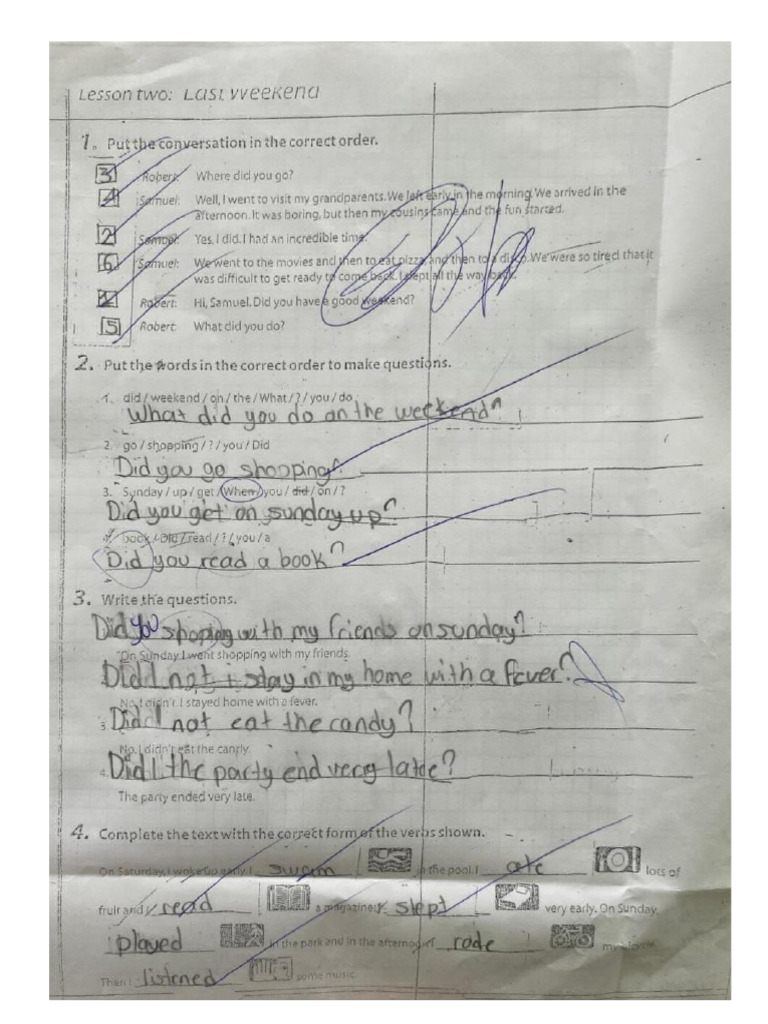 Lesson two: Last Weekend
1. Put the conversation in the correct order.
3 Robert: Where did you go?
4 Samuel: Well, I went to visit my grandparents. We left early in the morning. We arrived in the
afternoon. It was boring, but then my cousins came and the fun started.
2 Samuel: Yes, I did. I had an incredible time.
6 Samuel: We went to the movies and then to eat pizza and then to a disco. We were so tired that it
was difficult to get ready to come back. I slept all the way back.
1 Robert: Hi, Samuel. Did you have a good weekend?
5 Robert: What did you do?
2. Put the words in the correct order to make questions.
1. did / weekend / on / the / What / ? / you / do
What did you do on the weekend?
2. go / shopping / ? / you / Did
Did you go shopping?
3. Sunday / up / get / When / you / did / on / ?
Did you get on sunday up?
4. book / Did / read / ? / you / a
Did you read a book?
3. Write the questions.
Did you shoping with my friends on sunday?
On Sunday I went shopping with my friends.
Did I not stay in my home with a fever?
No, I didn't. I stayed home with a fever.
3. Did I not eat the candy?
No, I didn't eat the candy.
4. Did I the party end very late?
The party ended very late.
4. Complete the text with the correct form of the verbs shown.
On Saturday, I woke up early. I swam in the pool. I ate lots of
fruit and read a magazine. I slept very early. On Sunday,
played in the park and in the afternoon I rode my
Then I listened some music.